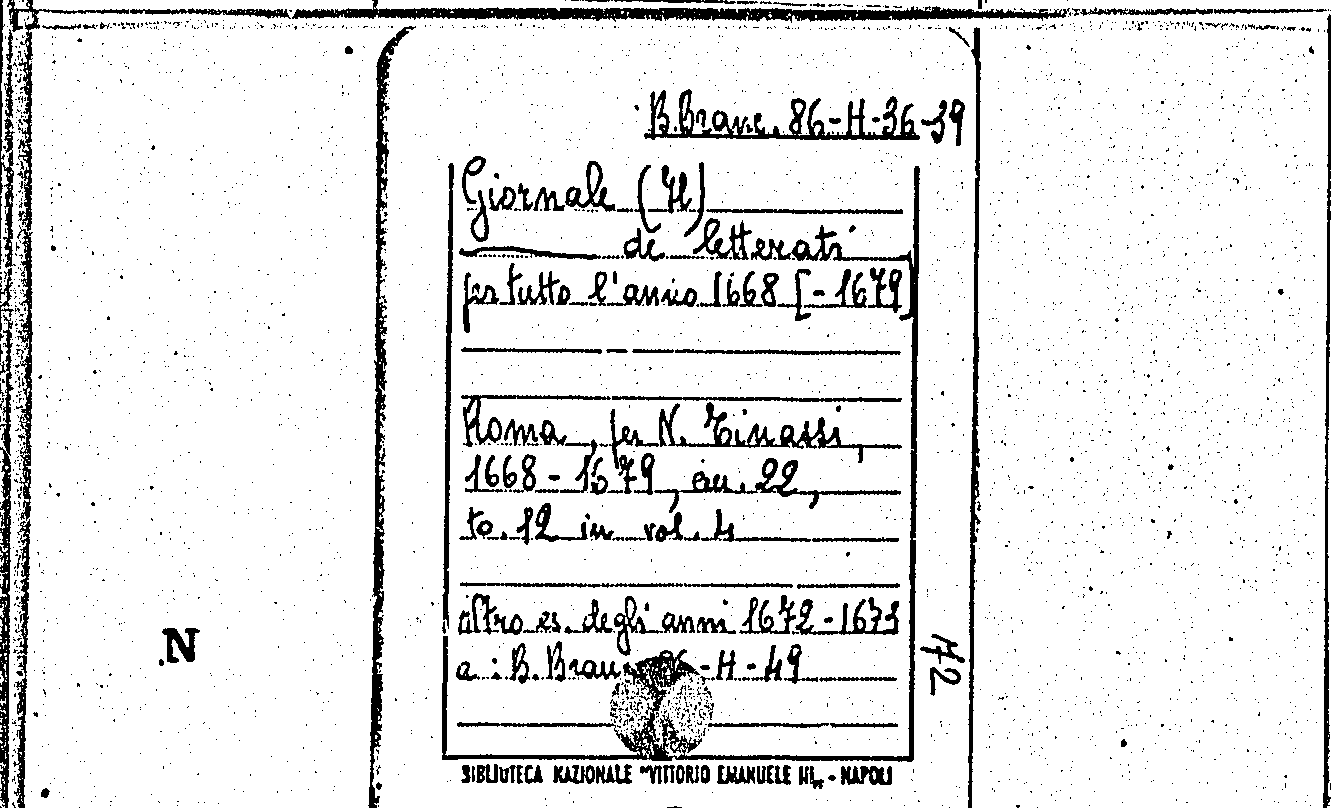 B.Branc. 86-H-36-39
Giornale (Il)
de letterati
per tutto l'anno 1668 [-1679]
Roma, per N. Tinassi,
1668-1679, cm. 22,
to. 12 in vol. 4
altro es. degli anni 1672-1673
a: B. Branc. 86-H-49
72
N
BIBLIOTECA NAZIONALE "VITTORIO EMANUELE III„ - NAPOLI